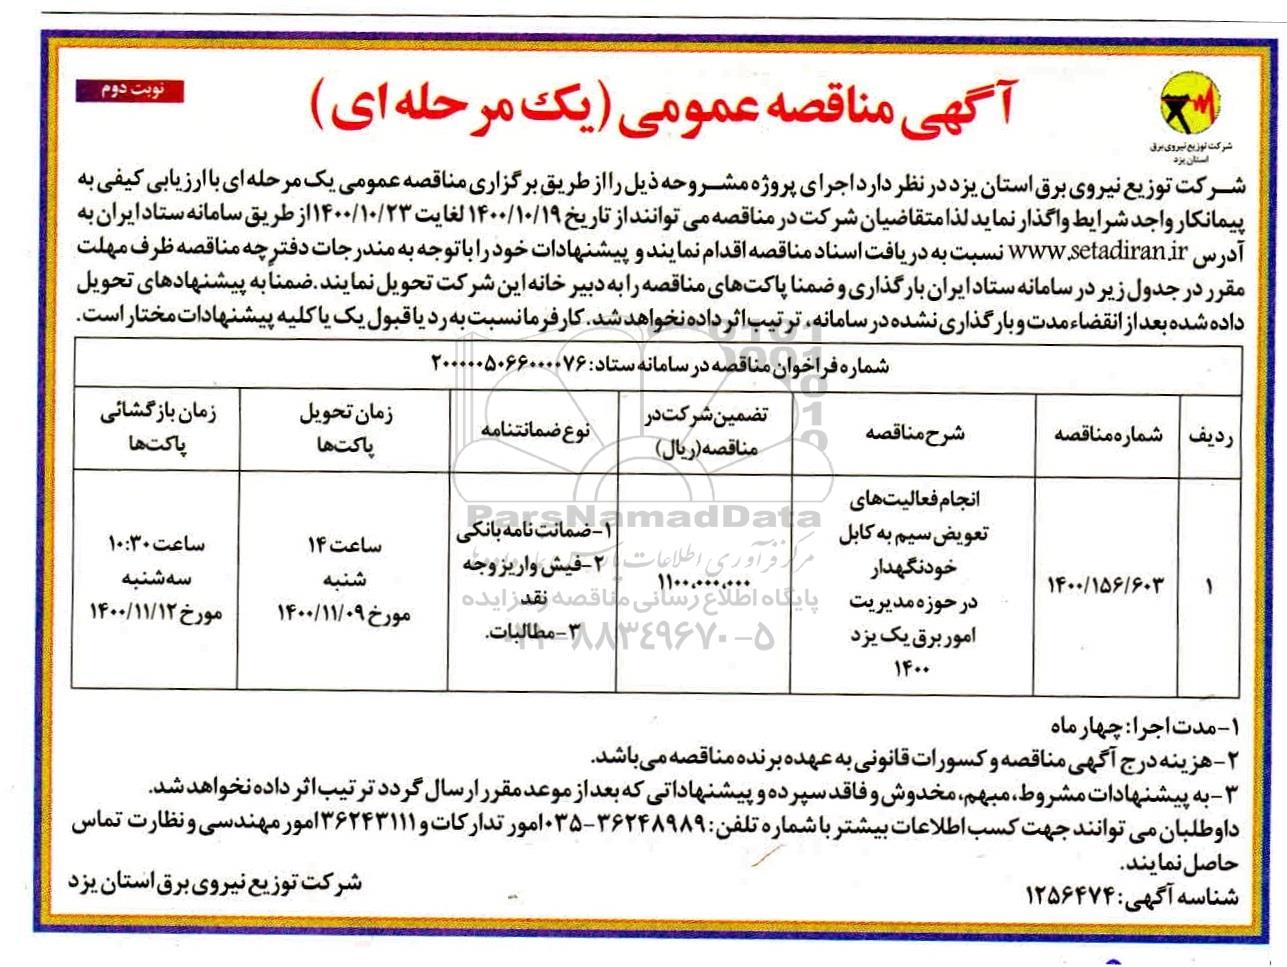 نوبت دوم
آگهی مناقصه عمومی (یک مرحله ای)
شرکت توزیع نیروی برق
استان یزد
شرکت توزیع نیروی برق استان یزد در نظر دارد اجرای پروژه مشروحه ذیل را از طریق برگزاری مناقصه عمومی یک مرحله ای با ارزیابی کیفی به
پیمانکار واجد شرایط واگذار نماید لذا متقاضیان شرکت در مناقصه می توانند از تاریخ ۱۴۰۰/۱۰/۱۹ لغایت ۱۴۰۰/۱۰/۲۳ از طریق سامانه ستاد ایران به
آدرس www.setadiran.ir نسبت به دریافت اسناد مناقصه اقدام نمایند و پیشنهادات خود را با توجه به مندرجات دفترچه مناقصه ظرف مهلت
مقرر در جدول زیر در سامانه ستاد ایران بارگذاری و ضمنا پاکت‌های مناقصه را به دبیر خانه این شرکت تحویل نمایند. ضمناً به پیشنهادهای تحویل
داده شده بعد از انقضاء مدت و بارگذاری نشده در سامانه، ترتیب اثر داده نخواهد شد. کارفرما نسبت به رد یا قبول یک یا کلیه پیشنهادات مختار است.
شماره فراخوان مناقصه در سامانه ستاد: ۲۰۰۰۰۰۵۰۶۶۰۰۰۰۷۶
ردیف
شماره مناقصه
شرح مناقصه
تضمین شرکت در
مناقصه (ریال)
نوع ضمانتنامه
زمان تحویل
پاکت‌ها
زمان بازگشائی
پاکت‌ها
۱
۱۴۰۰/۱۵۶/۶۰۳
انجام فعالیت‌های
تعویض سیم به کابل
خودنگهدار
در حوزه مدیریت
امور برق یک یزد
۱۴۰۰
۱۱۰۰.۰۰۰.۰۰۰
۱-ضمانت نامه بانکی
۲-فیش واریز وجه
نقد
۳-مطالبات.
ساعت ۱۴
شنبه
مورخ ۱۴۰۰/۱۱/۰۹
ساعت ۱۰:۳۰
سه‌شنبه
مورخ ۱۴۰۰/۱۱/۱۲
ParsNamadData
پایگاه اطلاع رسانی مناقصه و مزایده
۰۲۱-۸۸۳۴۹۶۷۰-۵
۱-مدت اجرا: چهار ماه
۲-هزینه درج آگهی مناقصه و کسورات قانونی به عهده برنده مناقصه می‌باشد.
۳-به پیشنهادات مشروط، مبهم، مخدوش و فاقد سپرده و پیشنهاداتی که بعد از موعد مقرر ارسال گردد ترتیب اثر داده نخواهد شد.
داوطلبان می توانند جهت کسب اطلاعات بیشتر با شماره تلفن: ۳۶۲۴۸۹۸۹-۰۳۵ امور تدارکات و ۳۶۲۴۳۱۱۱ امور مهندسی و نظارت تماس
حاصل نمایند.
شناسه آگهی: ۱۲۵۶۴۷۴
شرکت توزیع نیروی برق استان یزد